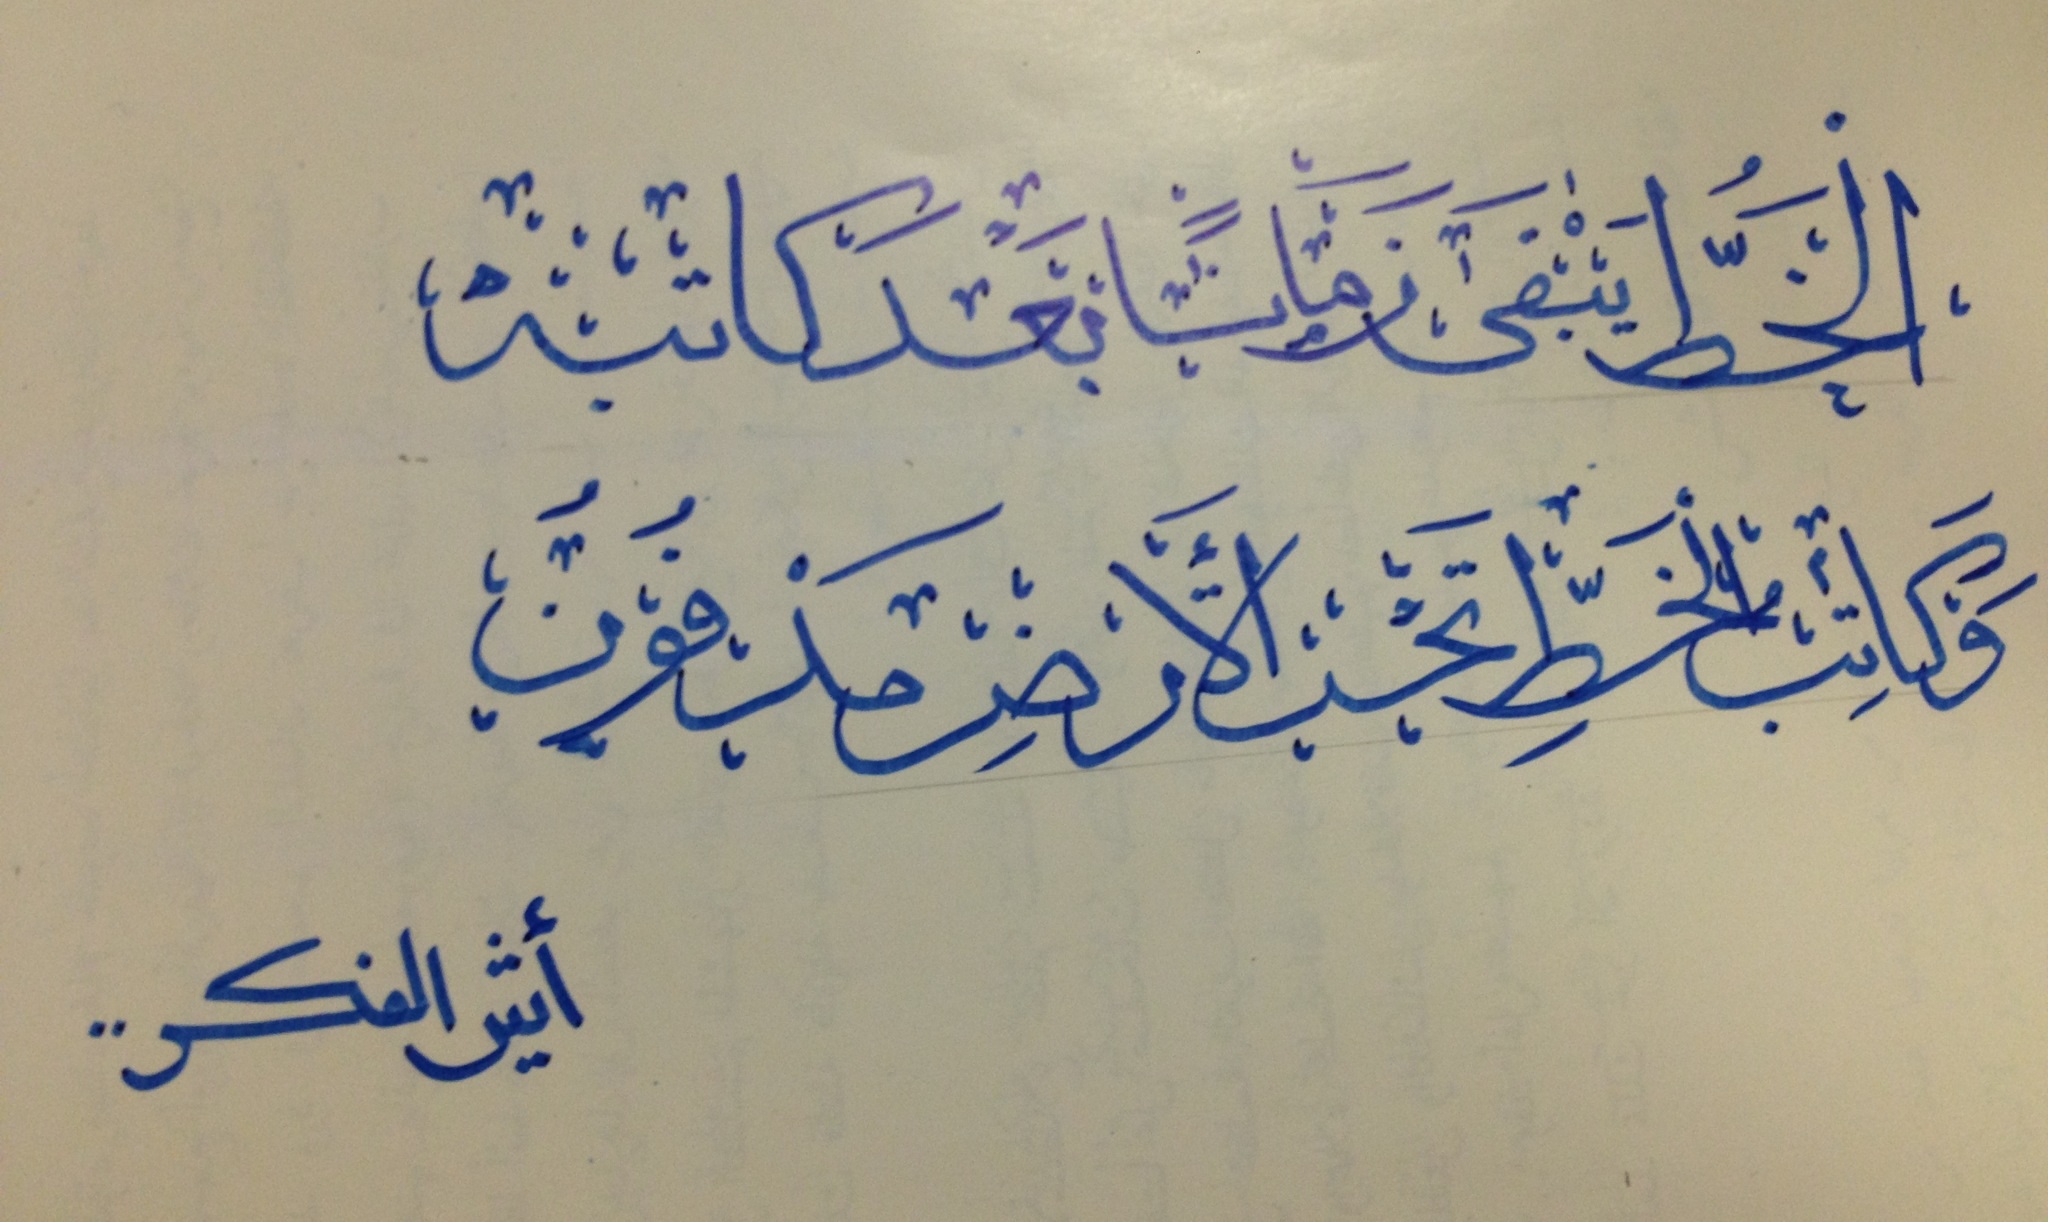 الخَطُّ يَبْقَى زَمَانًا بَعْدَ كَاتبه
وَكَاتِب الخَطِّ تَحْت الأَرضِ مَدفُونُ
الفكر ..